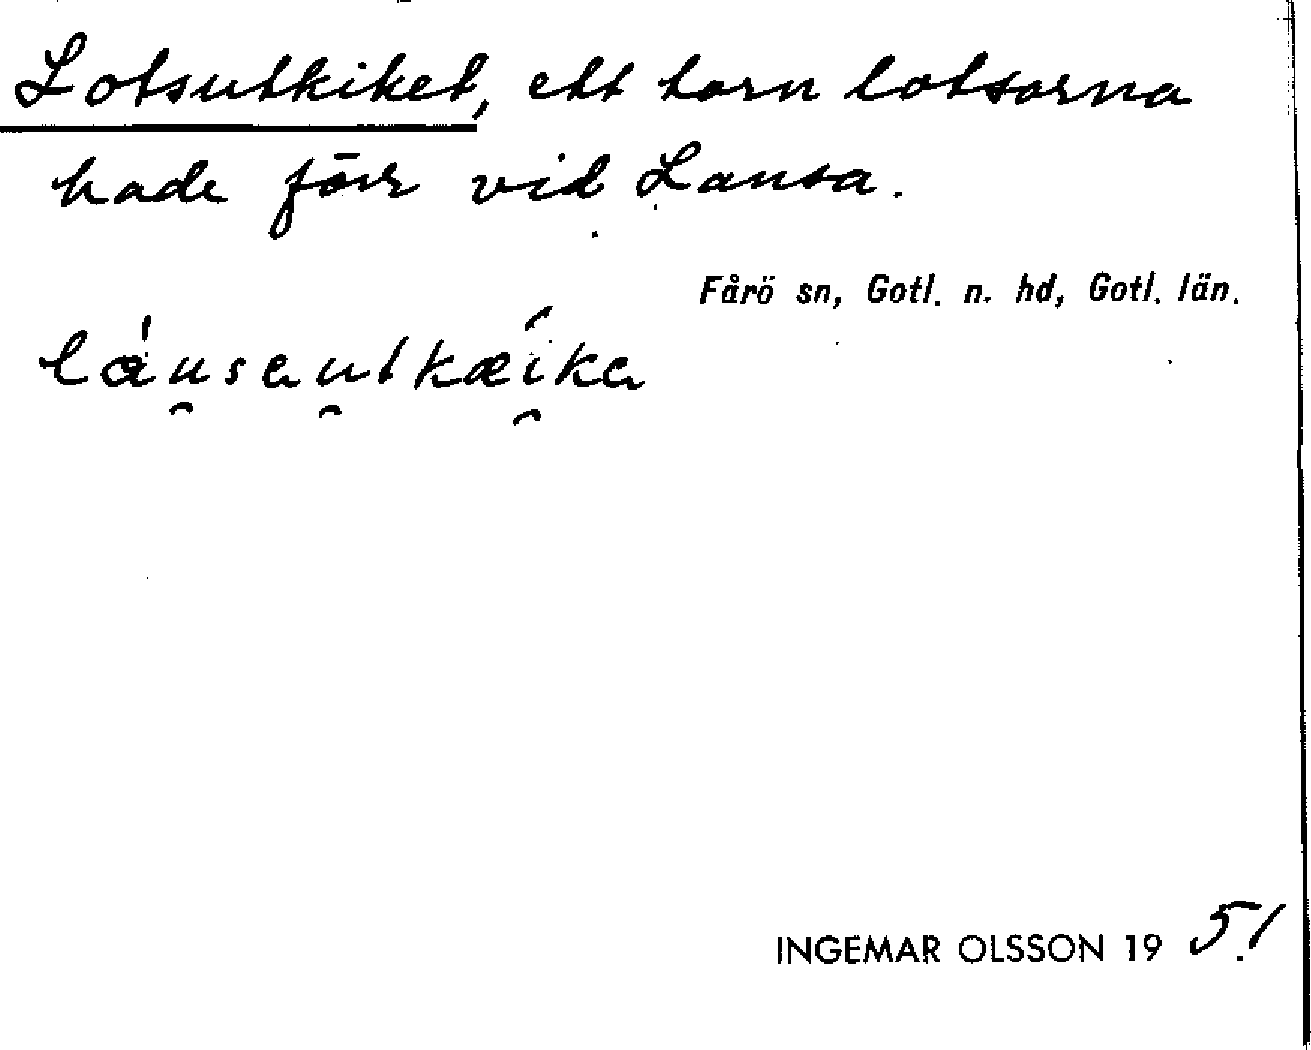 Lotsutkiket, ett torn lotsarna
hade förr vid Lansa.
Fårö sn, Gotl. n. hd, Gotl. län.
INGEMAR OLSSON 19 51